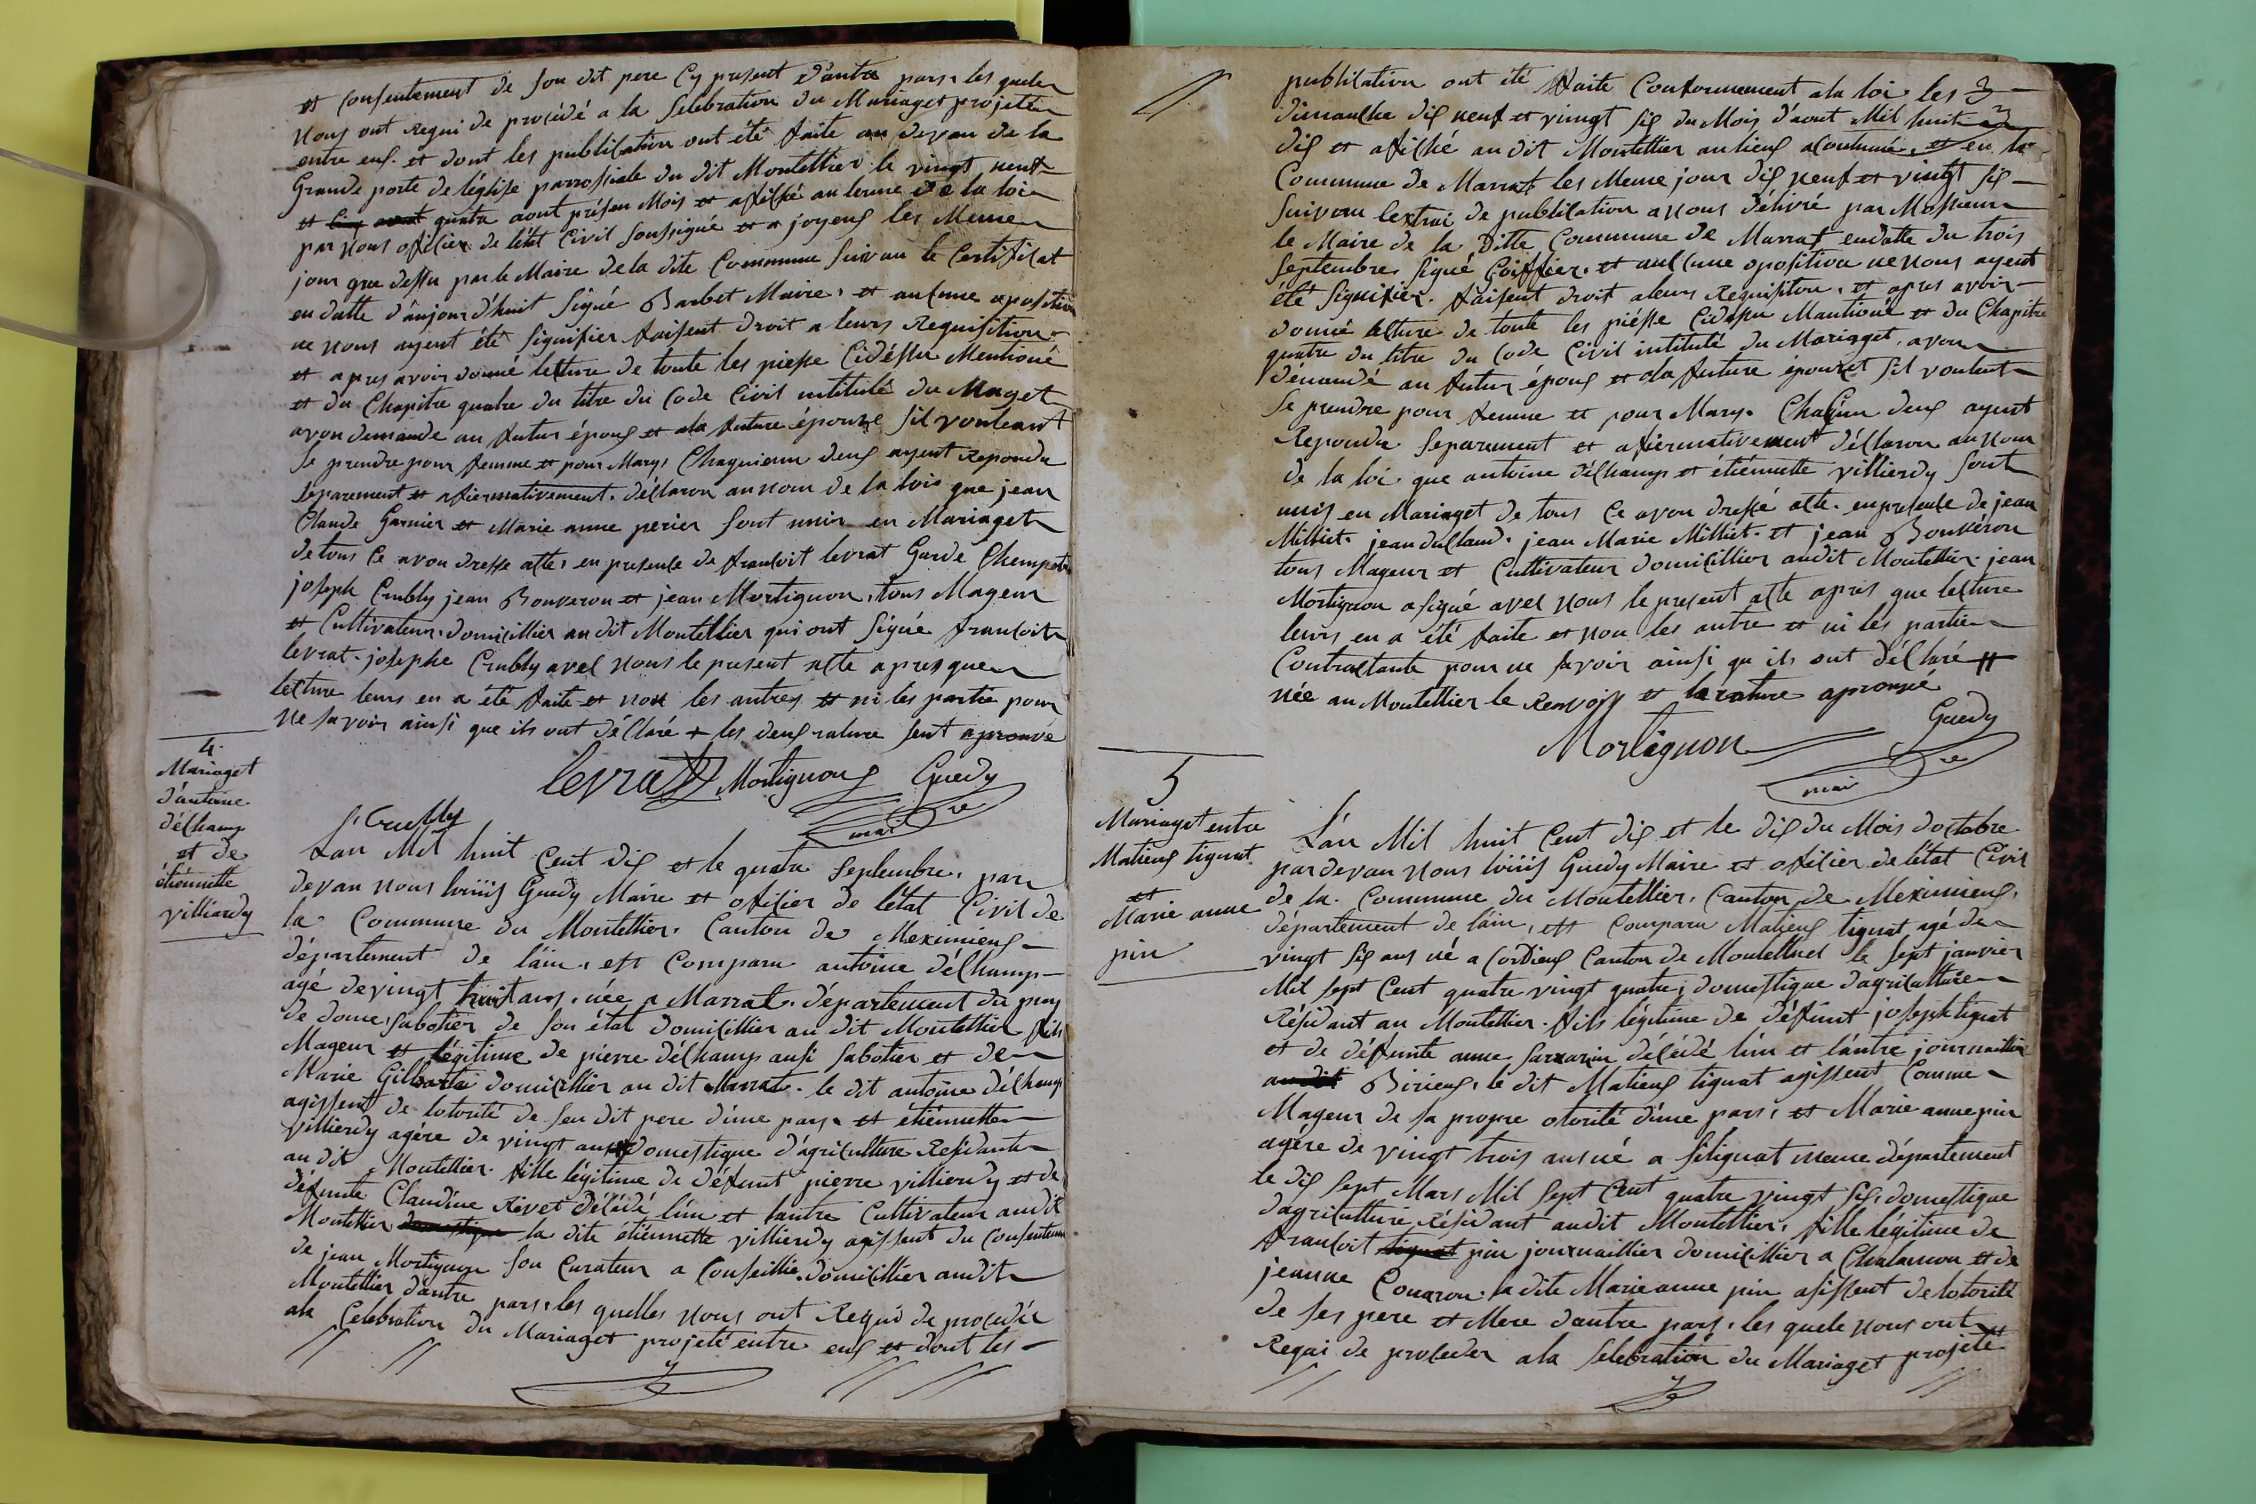 et consentement de son dit pere Cy present d'autre pars. les quele
nous ont requi de procédé a la selebration du Mariaget projeté
entre eux. et dont les publication ont été faite au devan de la
Grande porte de léglise parrossiale du dit Montellier le vingt neuf
et quatre aout présen Mois et affiché au terme de la loi
par nous officier de létat Civil soussigné et a joyeux les Meme
jour que dessu par le Maire de la dite Commune suivan le Certificat
en datte d'aujourd'huit signé Barbet Maire. et aucune oposition
ne nous ayent été signifier faisent droit a leurs Requisition
et apres avoir donné lecture de toute les piesse Cidéssu Mentioné
et du Chapitre quatre du titre du Code Civil intitulé du Maget
avon demande au futur époux et ala future épouze sil vouleant
se prendre pour femme et pour Mary, Chaquieun deux ayent Repondu
separement et afiermativement. déClaron au nom de la lois que jean
Claude Garnier et Marie anne perier sont unis en Mariaget
de tous Ce avon dresse atte, en presence de francoit levrat Garde Champetre
joseph Crubly jean Bonveron et jean Mortignon, tous Mageur
et Cultivateur domicillier au dit Montellier qui ont signé francoit
levrat. josephe Crubly avec nous le present atte apres que
lecture leurs en a été faite et non les autres et ni les partie pour
ne savoir ainsi que ils ont déClaré + les deux rature sent aprouvé
levrat Mortignon Guedy
maire
j Crubly
4.
Mariaget
d'antoine
délchamp
et de
étiénnette
villiardy
Lan Mil huit Cent dix et le quatre septembre, par
devan nous louis Guedy Maire et officier de létat Civil de
la Commune du Montellier. Canton de Meximieux
département de láin, est Comparu antoine délchamp
agé de vingt huit ans, née a Marrat. département du puy
de dome, sabotier de son état domicillier au dit Montellier fils
Mageur et légitime de pierre délchamp ausi sabotier et de
Marie Gilbarte domicillier au dit Marrat. le dit antoine délchamp
agissent de lotorité de seu dit pere d'une pars. et étiénnette
villierdy agére de vingt ans domestique d'agriculture Residante
au dit Montellier. fille légitime de défunt pierre villierdy et de
défunte Claudine Rivet déCédé lun et lautre Cultivateur au dit
Montellier la dite étiénnette villierdy agissent du Consentement
de jean Mortignon son Curateur a Conseillie domicillier au dit
Montellier d'autre pars, les quelles nous ont Requi de procedér
ala Celebration du Mariaget projeté entre eux et dont les
publication ont été faite Conformement ala loi les
dimanche dix neuf et vingt six du Mois d'aout Mil huit
dix et affiché au dit Montellier au lieux acoutumé, et en la
Commune de Marrat les Meme jour dix neuf et vingt six
suivan lextrai de publication a nous délivré par Monsieur
le Maire de la ditte Commune de Marrat en datte du trois
septembre. signé Coiffier. et aucune oposition ne nous ayent
été signifier. faisent droit aleurs Requisition, et apres avoir
donné lecture de toute les piésse Cidessu Mantioné et du Chapitre
quatre du titre du Code Civil intitulé du Mariaget, avon
démandé au futur époux et ala future épouzet sil voulent
se prendre pour femme et pour Mary. Chacun deux ayent
Repondu separement et afiermativement déClaron au nom
de la loi que antoine délchamp et étiénnette villierdy sont
unis en Mariaget de tous Ce avon dressé atte. en presence de jean
Milliet. jean duclaud. jean Marie Milliet. et jean Bonveron
tous Mageur et Cultivateur domicillier audit Montellier. jean
Mortignon a signé avec nous le present atte apres que lecture
leurs en a été faite et non les autre et ni les partie
Contractante pour ne savoir ainsi qu ils ont déClaré #
née au Montellier le Renvoix et la rature aprouvé
Mortignon Guedy
maire
5
Mariaget entre
Matieux tignat
et
Marie anne
pin
L'an Mil huit Cent dix et le dix du Mois doctobre
pardevan nous louis Guedy Maire et officier de létat Civil
de la Commune du Montellier. Canton de Meximieux.
département de láin, est Comparu Matieux tignat agé de
vingt six ans né a Cordieux Canton de Montelluel le sept janvier
Mil sept Cent quatre vingt quatre, domestique dagriculture
Résidant au Montellier. fils légitime de défunt joseph tignat
et de défunte anne sarrazin décédé lún et láutre journaillier
au dit Birieux, le dit Matieux tignat agissent Comme
Mageur de sa propre otorité dune pars, et Marie anne pin
agére de vingt trois ans né a sélignat meme département
le dix sept Mars Mil sept Cent quatre vingt sept. domestique
d'agriculture Résidant audit Montellier, fille légitime de
francoit pin journaillier domicillier a Chalamon et de
jeanne Couaron. la dite Marie anne pin asissent de lotorité
de ses pere et Mere d'autre pars, les quele nous ont
Reqai de proceder ala selebration du Mariaget projeté